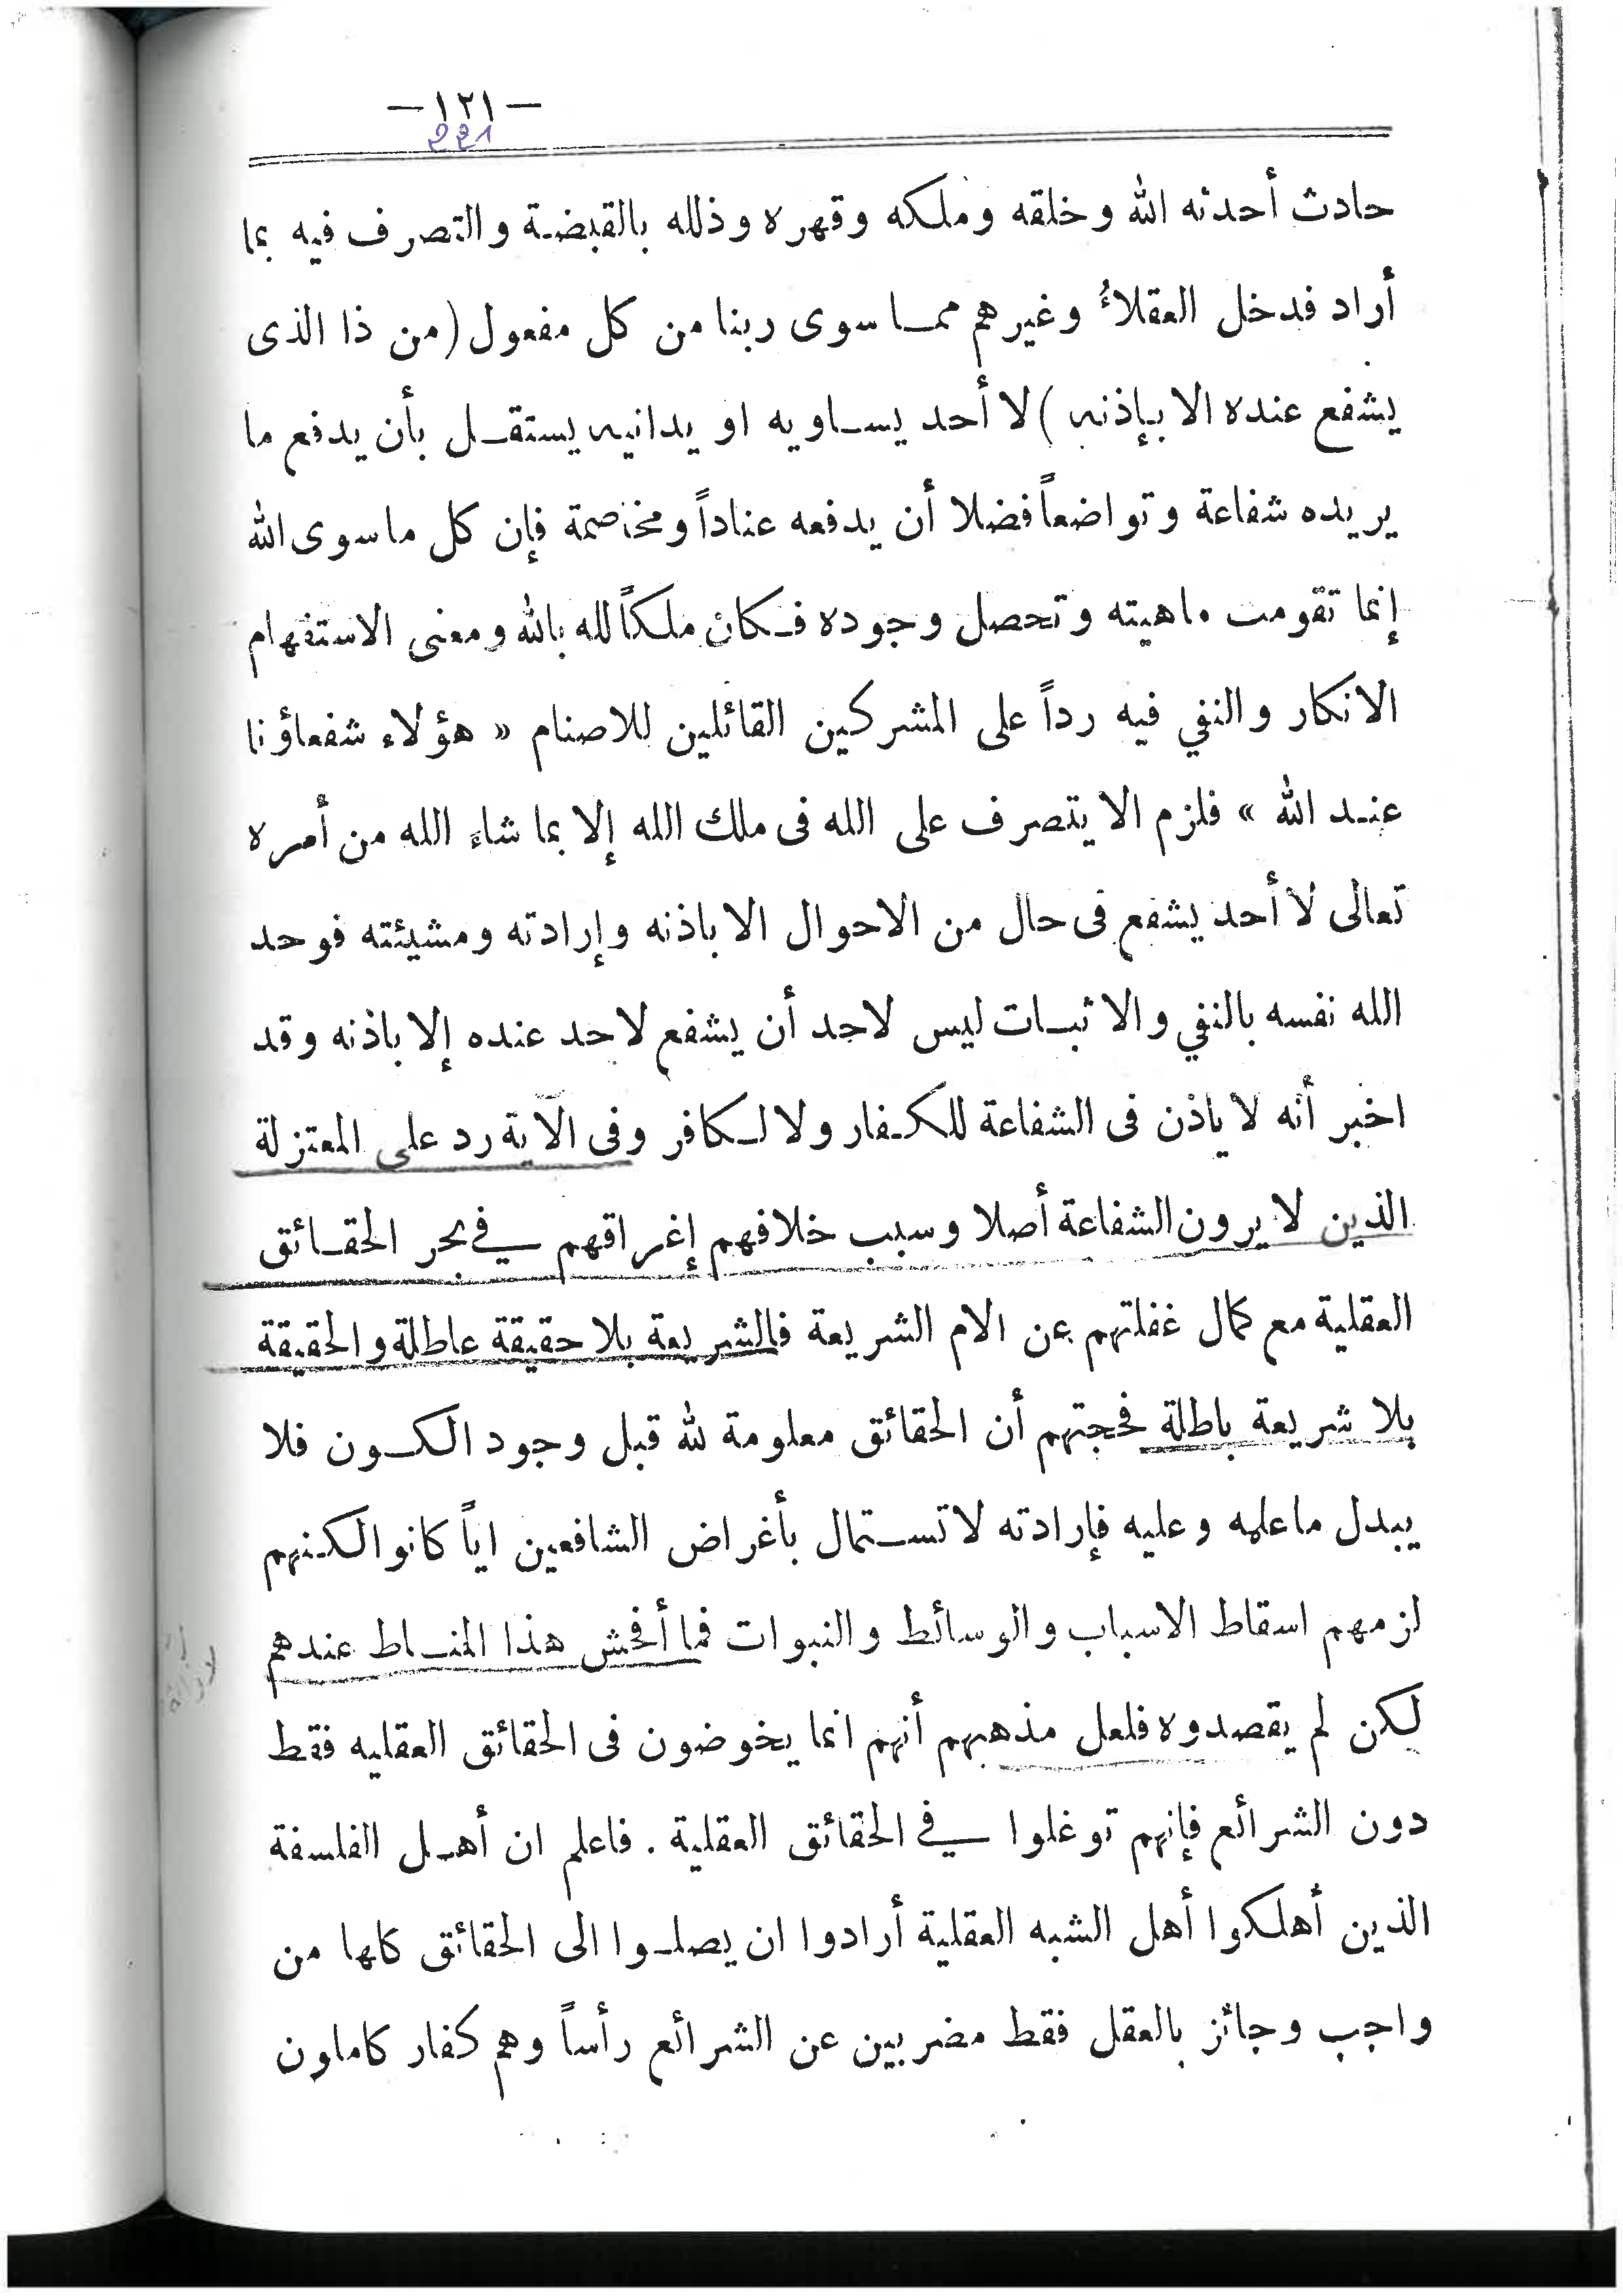 —١٢١—
221
حادث أحدثه الله وخلقه وملكه وقهره وذلله بالقبضة والتصرف فيه بما
أراد فدخل العقلاءُ وغيرهم ممـا سوى ربنا من كل مفعول (من ذا الذى
يشفع عنده الا بإذنه) لا أحد يسـاويه او يدانيه يستقـل بأن يدفع ما
يريده شفاعة وتواضعاً فضلا أن يدفعه عناداً ومخاصمة فإن كل ماسوى الله
إنما تقومت ماهيته وتحصل وجوده فـكان ملـكاً لله بالله ومعنى الاستفهام
الانكار والنفي فيه رداً على المشركين القائلين للاصنام « هؤلاء شفعاؤنا
عنـد الله » فلزم الا يتصرف على الله فى ملك الله إلا بما شاء الله من أمره
تعالى لا أحد يشفع فى حال من الاحوال الا باذنه وإرادته ومشيئته فوحد
الله نفسه بالنفي والاثبـات ليس لاحد أن يشفع لاحد عنده إلا باذنه وقد
اخبر أنه لا ياذن فى الشفاعة للكـفار ولا لـكافر وفى الآية رد على المعتزلة
الذين لا يرون الشفاعة أصلا وسبب خلافهم إغراقهم في بحر الحقـائق
العقلية مع كمال غفلتهم عن الام الشريعة فالشريعة بلا حقيقة عاطلة والحقيقة
بلا شريعة باطلة فحجتهم أن الحقائق معلومة لله قبل وجود الكـون فلا
يبدل ماعلمه وعليه فإرادته لا تسـتمال بأغراض الشافعين اياً كانوا لكنهم
لزمهم اسقاط الاسباب والوسائط والنبوات فما أفحش هذا المنـاط عندهم
لكن لم يقصدوه فلعل مذهبهم أنهم انما يخوضون فى الحقائق العقليه فقط
دون الشرائع فإنهم توغلوا في الحقائق العقلية . فاعلم ان أهـل الفلسفة
الذين أهلكوا أهل الشبه العقلية أرادوا ان يصلـوا الى الحقائق كلها من
واجب وجائز بالعقل فقط مضربين عن الشرائع رأساً وهم كفار كاملون